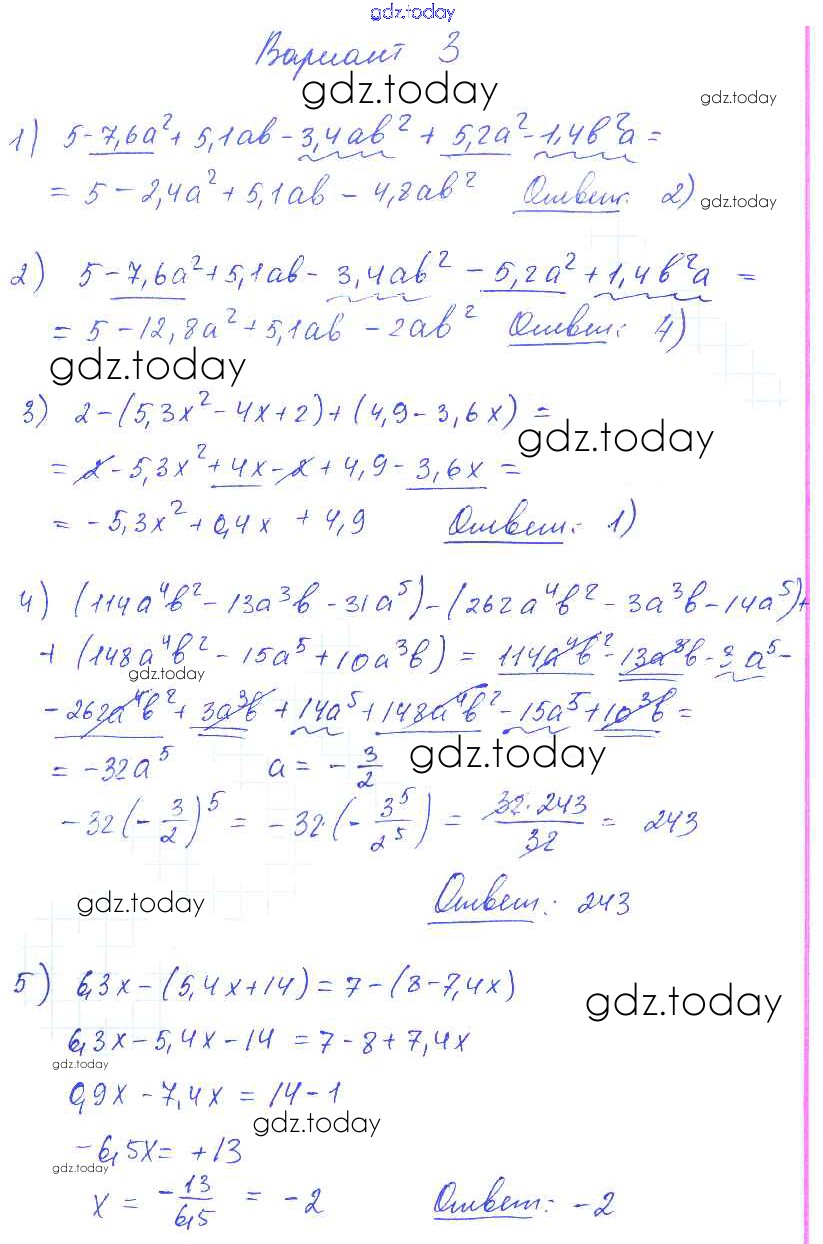 gdz.today
Вариант 3
gdz.today
gdz.today
1) 5 - 7,6a² + 5,1ab - 3,4ab² + 5,2a² - 1,4b²a =
= 5 - 2,4a² + 5,1ab - 4,8ab² Ответ: 2) gdz.today
2) 5 - 7,6a² + 5,1ab - 3,4ab² - 5,2a² + 1,4b²a =
= 5 - 12,8a² + 5,1ab - 2ab² Ответ: 4)
gdz.today
3) 2 - (5,3x² - 4x + 2) + (4,9 - 3,6x) =
gdz.today
= 2 - 5,3x² + 4x - 2 + 4,9 - 3,6x =
= - 5,3x² + 0,4x + 4,9 Ответ: 1)
4) (114a⁴b² - 13a³b - 31a⁵) - (262a⁴b² - 3a³b - 14a⁵) +
+ (148a⁴b² - 15a⁵ + 10a³b) = 114a⁴b² - 13a³b - 3 a⁵ -
gdz.today
- 262a⁴b² + 3a³b + 14a⁵ + 148a⁴b² - 15a⁵ + 10a³b =
= -32a⁵ a = - 3/2 gdz.today
-32(-3/2)⁵ = -32·(-3⁵/2⁵) = 32·243/32 = 243
gdz.today Ответ: 243
5) 6,3x - (5,4x + 14) = 7 - (8 - 7,4x)
gdz.today
6,3x - 5,4x - 14 = 7 - 8 + 7,4x
gdz.today
0,9x - 7,4x = 14 - 1
gdz.today
-6,5x = +13
gdz.today
x = -13/6,5 = -2 Ответ: -2